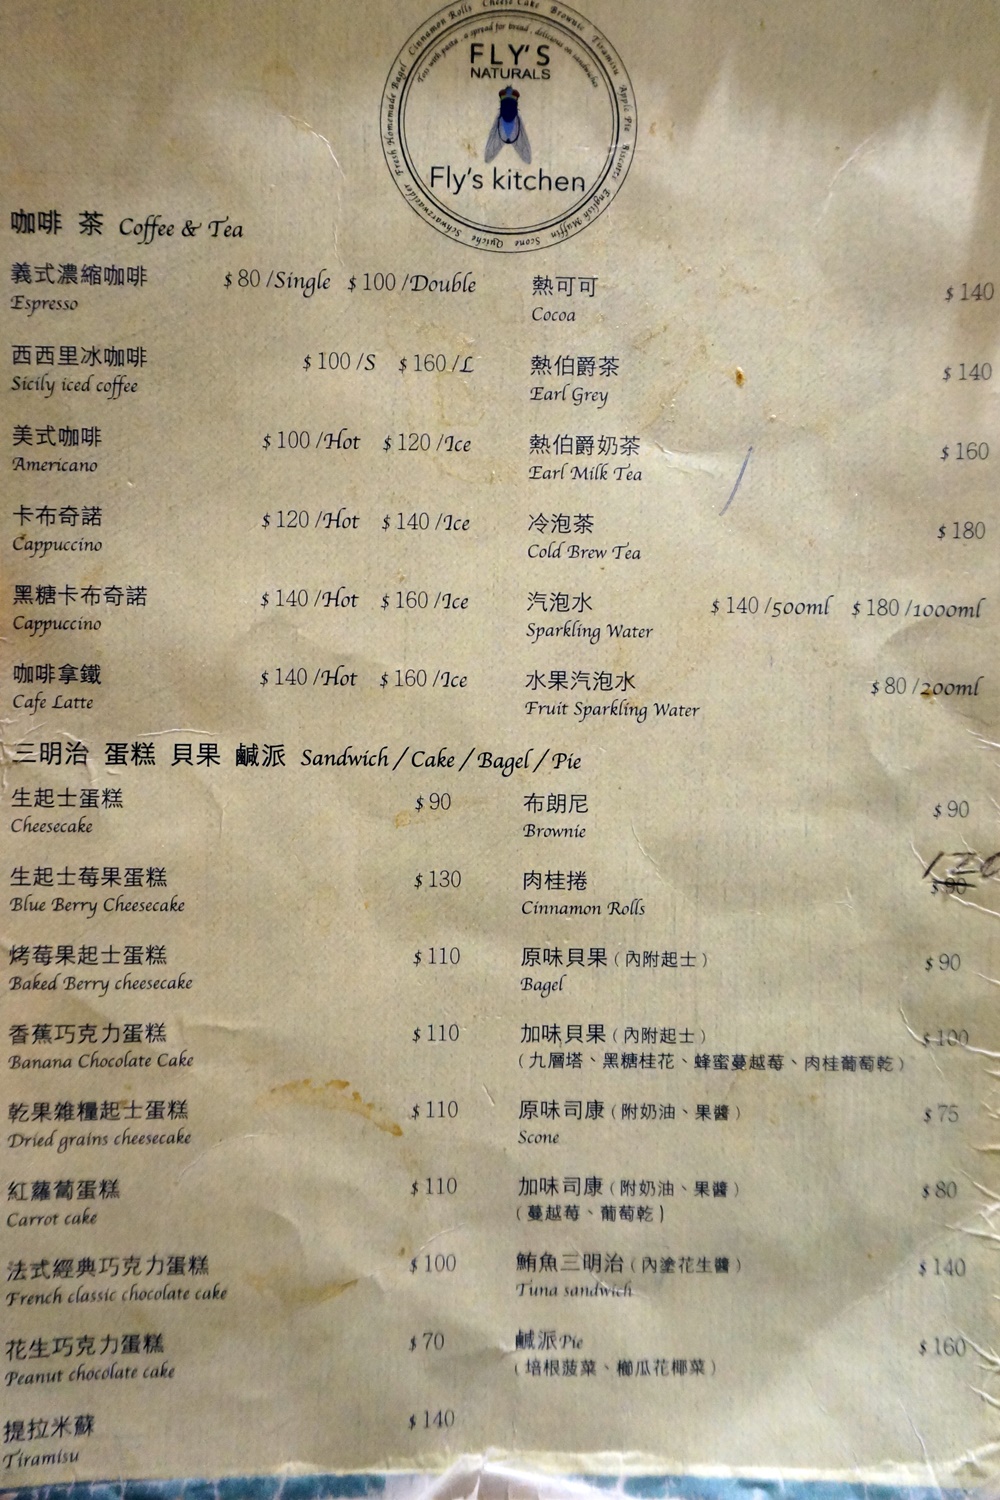 Fresh Homemade Bagel Cinnamon Rolls Cheese Cake Brownie Tiramisu Apple Pie Biscotti English Muffin Scone Quiche Schwarzwalder
Toss with pasta . a spread for bread . delicious on sandwiches
FLY'S
NATURALS
Fly's kitchen
咖啡 茶 Coffee & Tea
義式濃縮咖啡 $80/Single $100/Double
Espresso
西西里冰咖啡 $100/S $160/L
Sicily iced coffee
美式咖啡 $100/Hot $120/Ice
Americano
卡布奇諾 $120/Hot $140/Ice
Cappuccino
黑糖卡布奇諾 $140/Hot $160/Ice
Cappuccino
咖啡拿鐵 $140/Hot $160/Ice
Cafe Latte
熱可可 $140
Cocoa
熱伯爵茶 $140
Earl Grey
熱伯爵奶茶 $160
Earl Milk Tea
冷泡茶 $180
Cold Brew Tea
汽泡水 $140/500ml $180/1000ml
Sparkling Water
水果汽泡水 $80/200ml
Fruit Sparkling Water
三明治 蛋糕 貝果 鹹派 Sandwich / Cake / Bagel / Pie
生起士蛋糕 $90
Cheesecake
生起士莓果蛋糕 $130
Blue Berry Cheesecake
烤莓果起士蛋糕 $110
Baked Berry cheesecake
香蕉巧克力蛋糕 $110
Banana Chocolate Cake
乾果雜糧起士蛋糕 $110
Dried grains cheesecake
紅蘿蔔蛋糕 $110
Carrot cake
法式經典巧克力蛋糕 $100
French classic chocolate cake
花生巧克力蛋糕 $70
Peanut chocolate cake
提拉米蘇 $140
Tiramisu
布朗尼 $90
Brownie
120
肉桂捲 $90
Cinnamon Rolls
原味貝果(內附起士) $90
Bagel
加味貝果(內附起士) $100
(九層塔、黑糖桂花、蜂蜜蔓越莓、肉桂葡萄乾)
原味司康(附奶油、果醬) $75
Scone
加味司康(附奶油、果醬) $80
(蔓越莓、葡萄乾)
鮪魚三明治(內塗花生醬) $140
Tuna sandwich
鹹派Pie $160
(培根菠菜、櫛瓜花椰菜)